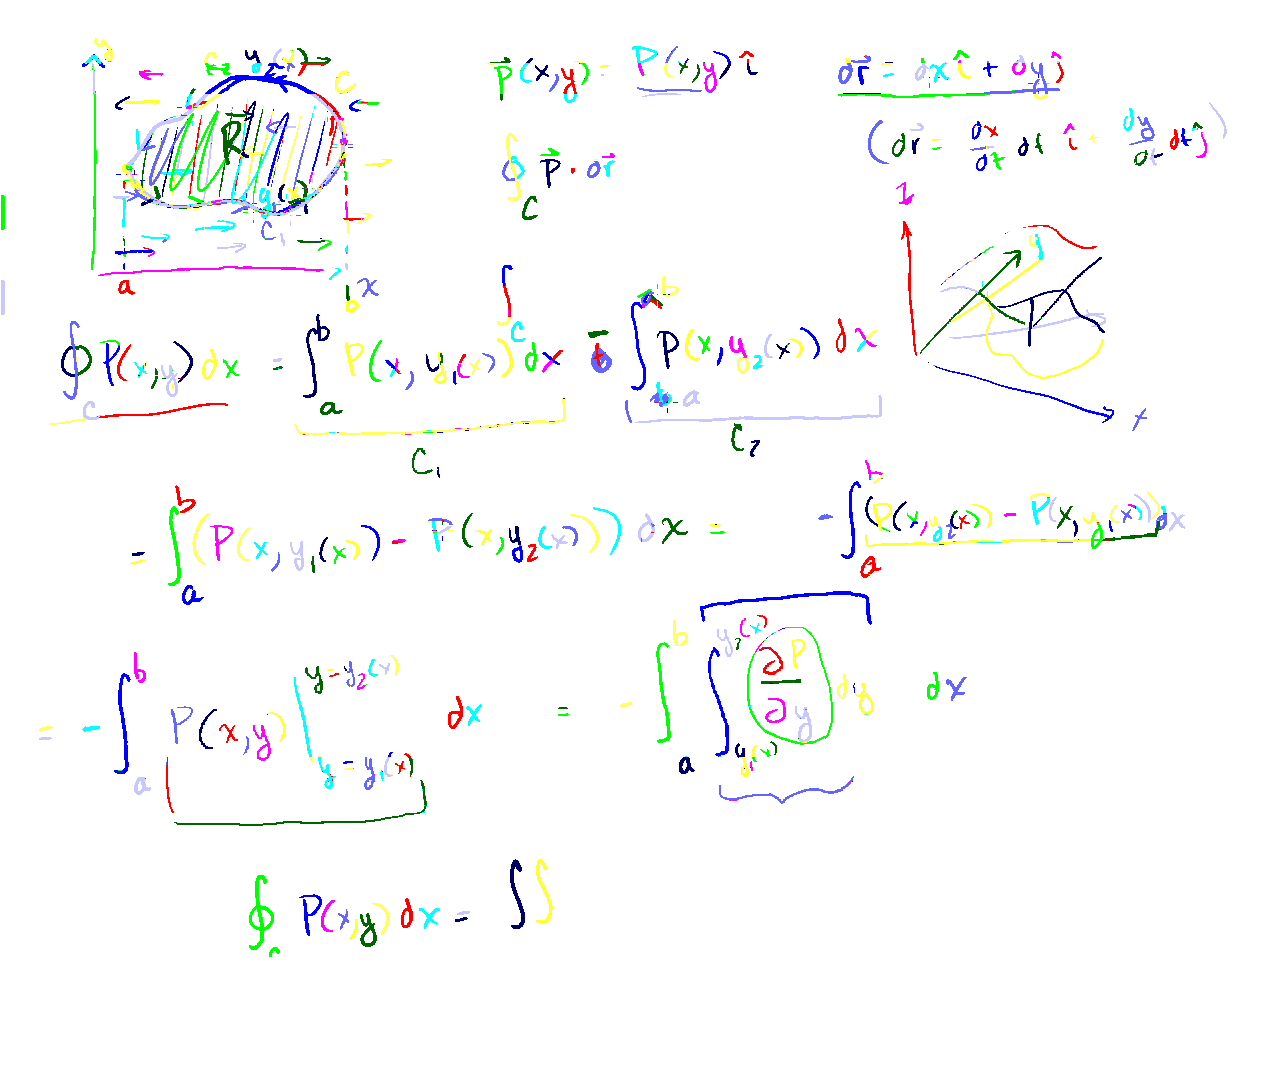 y
C₂ y₂(x) C
R
y₁(x)
C₁
a b x
P⃗(x,y) = P(x,y) î
∮_C P⃗ · dr⃗
dr⃗ = dx î + dy ĵ
(dr⃗ = dx/dt dt î + dy/dt dt ĵ)
z
y
x
∫_C
∮_C P(x,y) dx = ∫_a^b P(x, y₁(x)) dx - ∫_a^b P(x, y₂(x)) dx
C₁ C₂
= ∫_a^b (P(x, y₁(x)) - P(x, y₂(x))) dx = - ∫_a^b (P(x, y₂(x)) - P(x, y₁(x))) dx
= - ∫_a^b P(x,y) |_{y = y₁(x)}^{y = y₂(x)} dx = - ∫_a^b ∫_{y₁(x)}^{y₂(x)} ∂P/∂y dy dx
∮_c P(x,y) dx = ∫∫